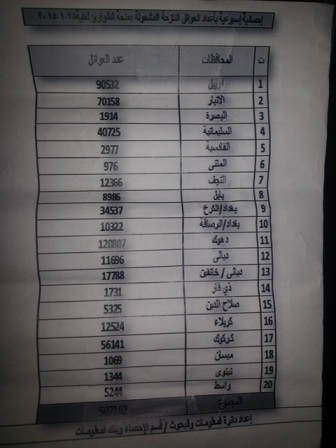 احصائية اسبوعية باعداد العوائل النازحة المشمولة بمنحة الطوارئ لغاية ١-١-٢٠١٥
ت المحافظات عدد العوائل
1 اربيل 90532
2 الانبار 70158
3 البصرة 1914
4 السليمانية 40725
5 القادسية 2977
6 المثنى 976
7 النجف 12366
8 بابل 8986
9 بغداد/الكرخ 34537
10 بغداد/الرصافة 10322
11 دهوك 120807
12 ديالى 11696
13 ديالى / خانقين 17788
14 ذي قار 1731
15 صلاح الدين 5325
16 كربلاء 12524
17 كركوك 56141
18 ميسان 1069
19 نينوى 1344
20 واسط 5244
المجموع 507162
اعداد دائرة المعلومات والبحوث / قسم الإحصاء وبنك المعلومات